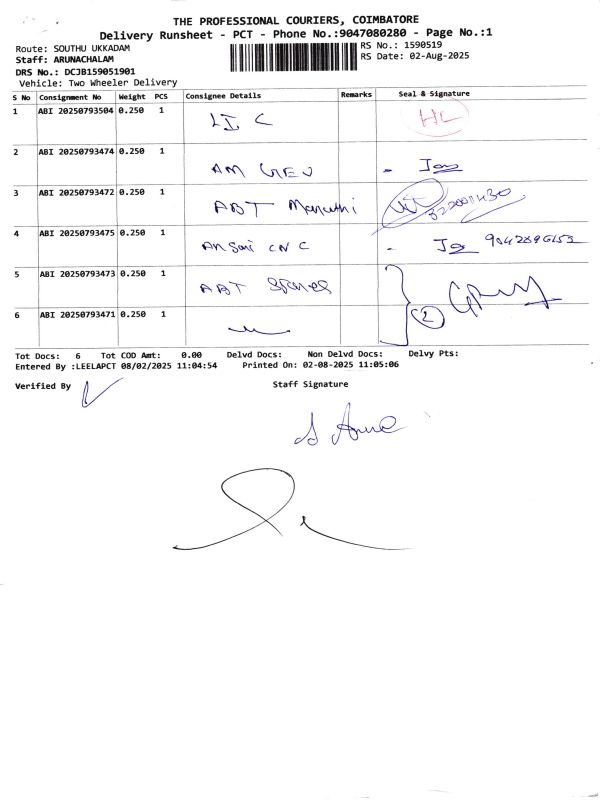 THE PROFESSIONAL COURIERS, COIMBATORE
Delivery Runsheet - PCT - Phone No.:9047080280 - Page No.:1
Route: SOUTHU UKKADAM
RS No.: 1590519
Staff: ARUNACHALAM
RS Date: 02-Aug-2025
DRS No.: DCJB159051901
Vehicle: Two Wheeler Delivery
S No Consignment No Weight PCS Consignee Details Remarks Seal & Signature
1 ABI 20250793504 0.250 1 LIC HL
2 ABI 20250793474 0.250 1 AM
3 ABI 20250793472 0.250 1 ABT Maruthi
4 ABI 20250793475 0.250 1 Ansari CNC
5 ABI 20250793473 0.250 1 ABT
6 ABI 20250793471 0.250 1 2
Tot Docs: 6 Tot COD Amt: 0.00 Delvd Docs: Non Delvd Docs: Delvy Pts:
Entered By :LEELAPCT 08/02/2025 11:04:54 Printed On: 02-08-2025 11:05:06
Verified By Staff Signature